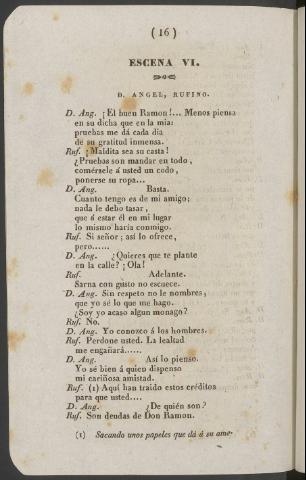 ( 16 )
ESCENA VI.
D. ANGEL, RUFINO.
D. Ang. ¡El buen Ramon!... Menos piensa
en su dicha que en la mia:
pruebas me dá cada dia
de su gratitud inmensa.
Ruf. ¡Maldita sea su casta!
¿Pruebas son mandar en todo,
comérsele á usted un codo,
ponerse su ropa...
D. Ang. Basta.
Cuanto tengo es de mi amigo;
nada le debo tasar,
que á estar él en mi lugar
lo mismo haría conmigo.
Ruf. Si señor; así lo ofrece,
pero......
D. Ang. ¿Quieres que te plante
en la calle? ¡Ola!
Ruf. Adelante.
Sarna con gusto no escuece.
D. Ang. Sin respeto no le nombres,
que yo sé lo que me hago.
¿Soy yo acaso algun monago?
Ruf. No.
D. Ang. Yo conozco á los hombres.
Ruf. Perdone usted. La lealtad
me engañará......
D. Ang. Así lo pienso.
Yo sé bien á quien dispenso
mi cariñosa amistad.
Ruf. (1) Aquí han traido estos créditos
para que usted....
D. Ang. ¿De quién son?
Ruf. Son deudas de Don Ramon.
(1) Sacando unos papeles que dá á su amo.